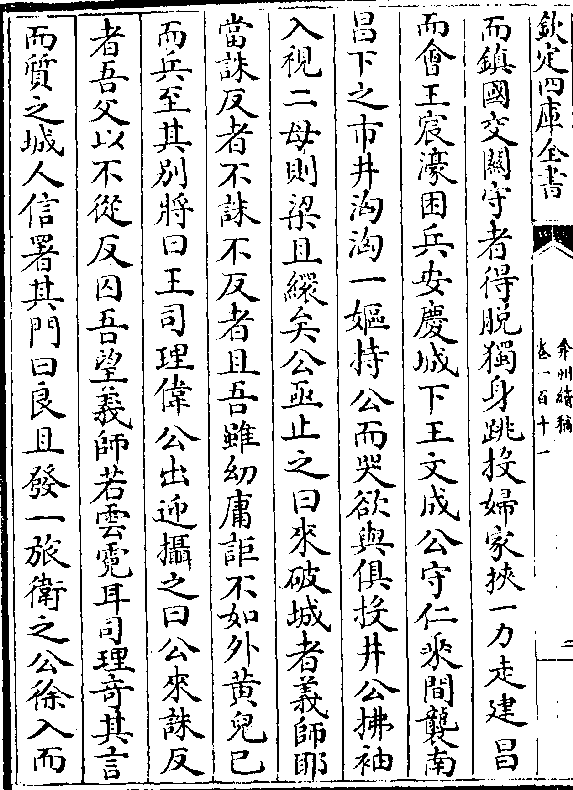 欽定四庫全書
弇州續稿
卷一百十一
二
而鎮國交關守者得脫獨身跳投婦家挾一力走建昌
而會王宸濠困兵安慶城下王文成公守仁乘間襲南
昌下之市井洶洶一嫗持公而哭欲與俱投井公拂袖
入視二母則梁且繯矣公亟止之曰來破城者義師耶
當誅反者不誅不反者且吾雖幼庸詎不如外黃兒已
而兵至其別將曰王司理偉公出迎攝之曰公來誅反
者吾父以不從反囚吾望義師若雲霓耳司理奇其言
而質之城人信署其門曰良且發一旅衛之公徐入而